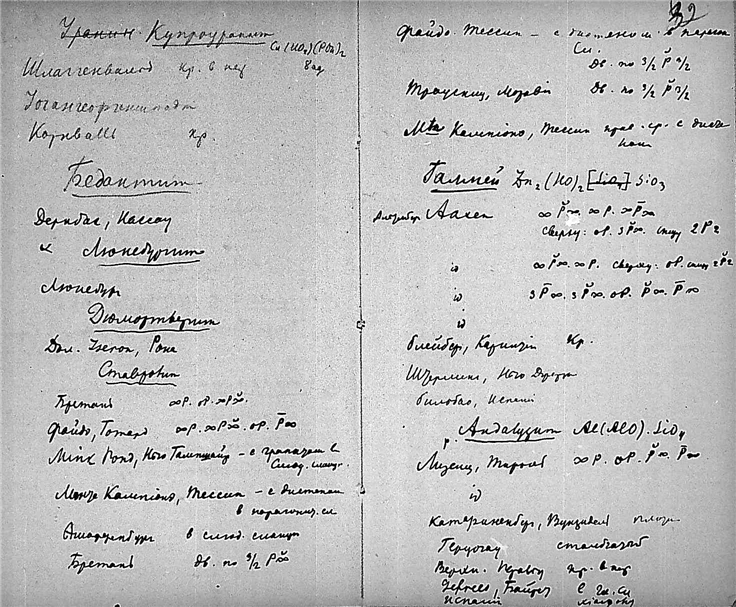 Уранин Купроуранит
Cu(UO2)(PO4)2
Шлаггенвальд кр. в пер 8 ад
Иогангеоргенштадт
Корнваллис кр.
Бедантит
Дернбах, Нассау
Люнебургит
Люнебург
Дюмортьерит
Дол. Izeron, Рона
Ставролит
Бретань ∞P. oP. ∞P̆∞.
Файдо, Готард ∞P. ∞P̆∞. oP. P̄∞
Mink Pond, Нью Гампшайр – с гранатом в
слюд. сланц.
Монте Кампионе, Тессин – с дистеном
в парагониз. сл
Ашаффенбург в слюд. сланце
Бретань дв. по 3/2 P̆∞
32
Файдо. Тессин – с дистеном в парагон
сл.
дв. по 3/2 P̆ 3/2
Траусниц, Моравия дв. по 3/2 P̆ 3/2
Mte Кампионе, Тессин с дисте
ном
Галмей Zn2(HO)2[SiO4] SiO3
Альтенберг Аахен ∞P̆∞. ∞P. ∞P̄∞
сверху: oP. 3P̆∞. снизу 2P2
id ∞P̆∞. ∞P. сверху: oP. снизу 2P̆2
id 3P̄∞. 3P̆∞. oP. P̆∞. P̄∞
id
Блейберг, Каринтия Кр.
Нью Джерзи
Бильбао, Испания
Андалузит Al(AlO).SiO4
Лизенц, Тироль ∞P. oP. P̆∞. P̄∞
id
Катариненберг, Вунзидель
Герцогау столбчатый
кр. в пер